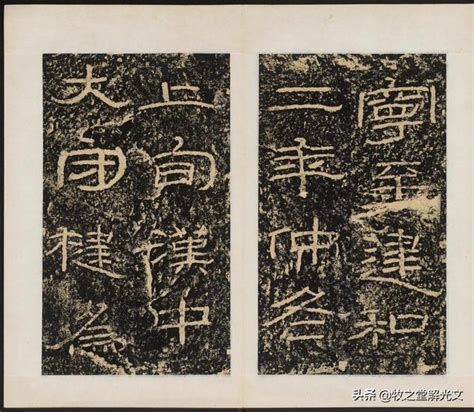 寧至建和
二年仲冬
上旬漢中
大守楗為
头条 @牧之堂解光文